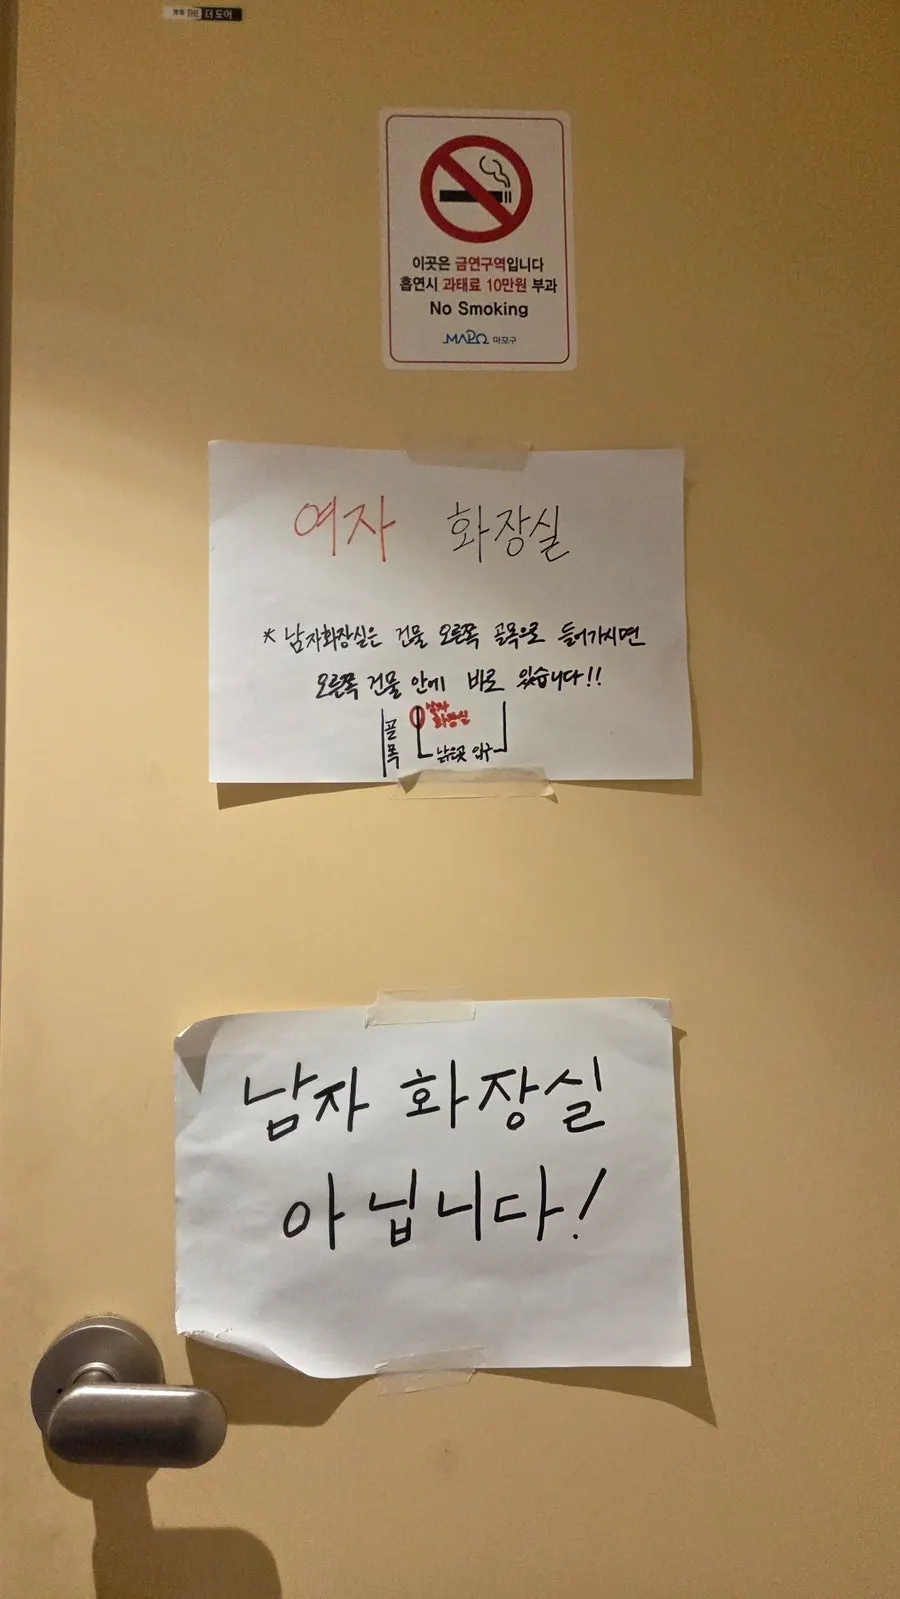 THE 더 도어
이곳은 금연구역입니다
흡연시 과태료 10만원 부과
No Smoking
MAPO 마포구
여자 화장실
* 남자화장실은 건물 오른쪽 골목으로 들어가시면
오른쪽 건물 안에 바로 있습니다!!
남자
화장실
골목
입구
남자 화장실
아닙니다!